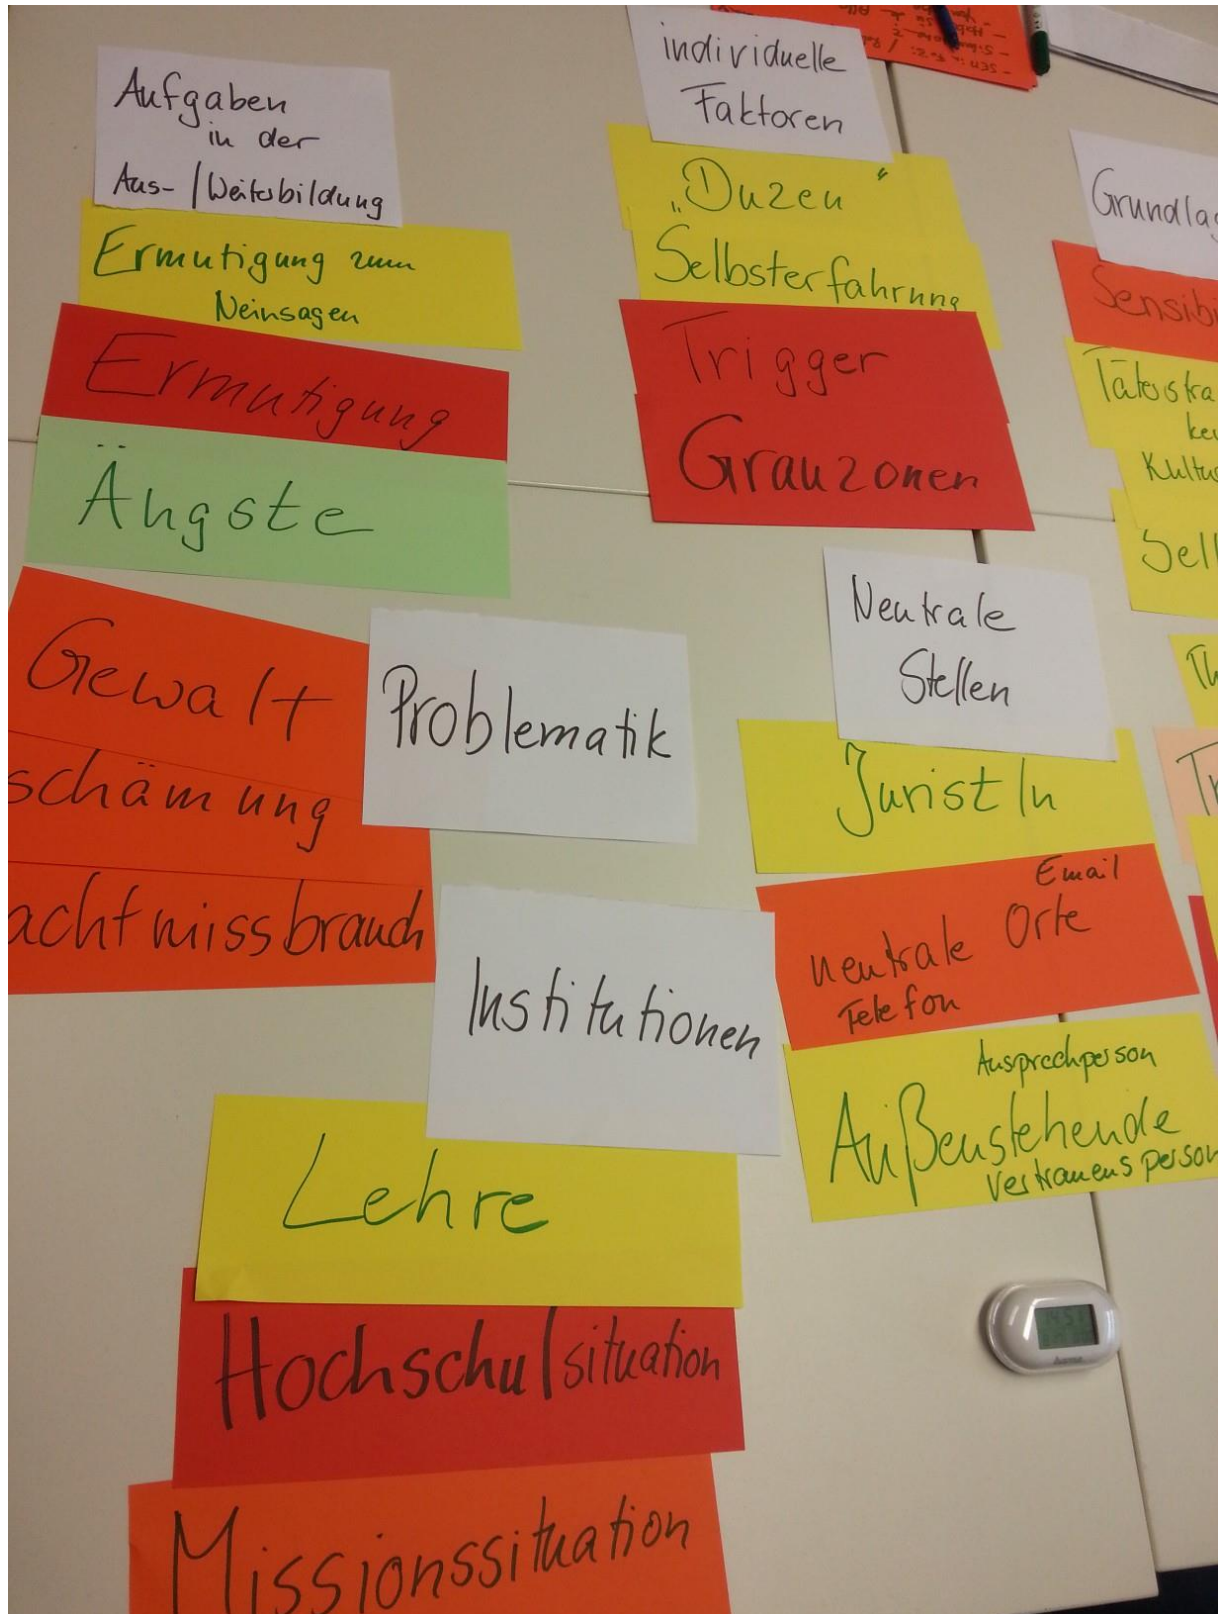 Aufgaben
in der
Aus-/Weiterbildung
Ermutigung zum
Neinsagen
Ermutigung
Ängste
Gewalt
schämung
achtmissbrauch
Problematik
Institutionen
Lehre
Hochschulsituation
Missionssituation
individuelle
Faktoren
„Duzen“
Selbsterfahrung
Trigger
Grauzonen
Neutrale
Stellen
JuristIn
Email
neutrale Orte
Telefon
Ansprechperson
Außenstehende
Vertrauensperson
Grundlag
Sensibi
Täterstra
Kultur
Sell
Th
Tr
hama